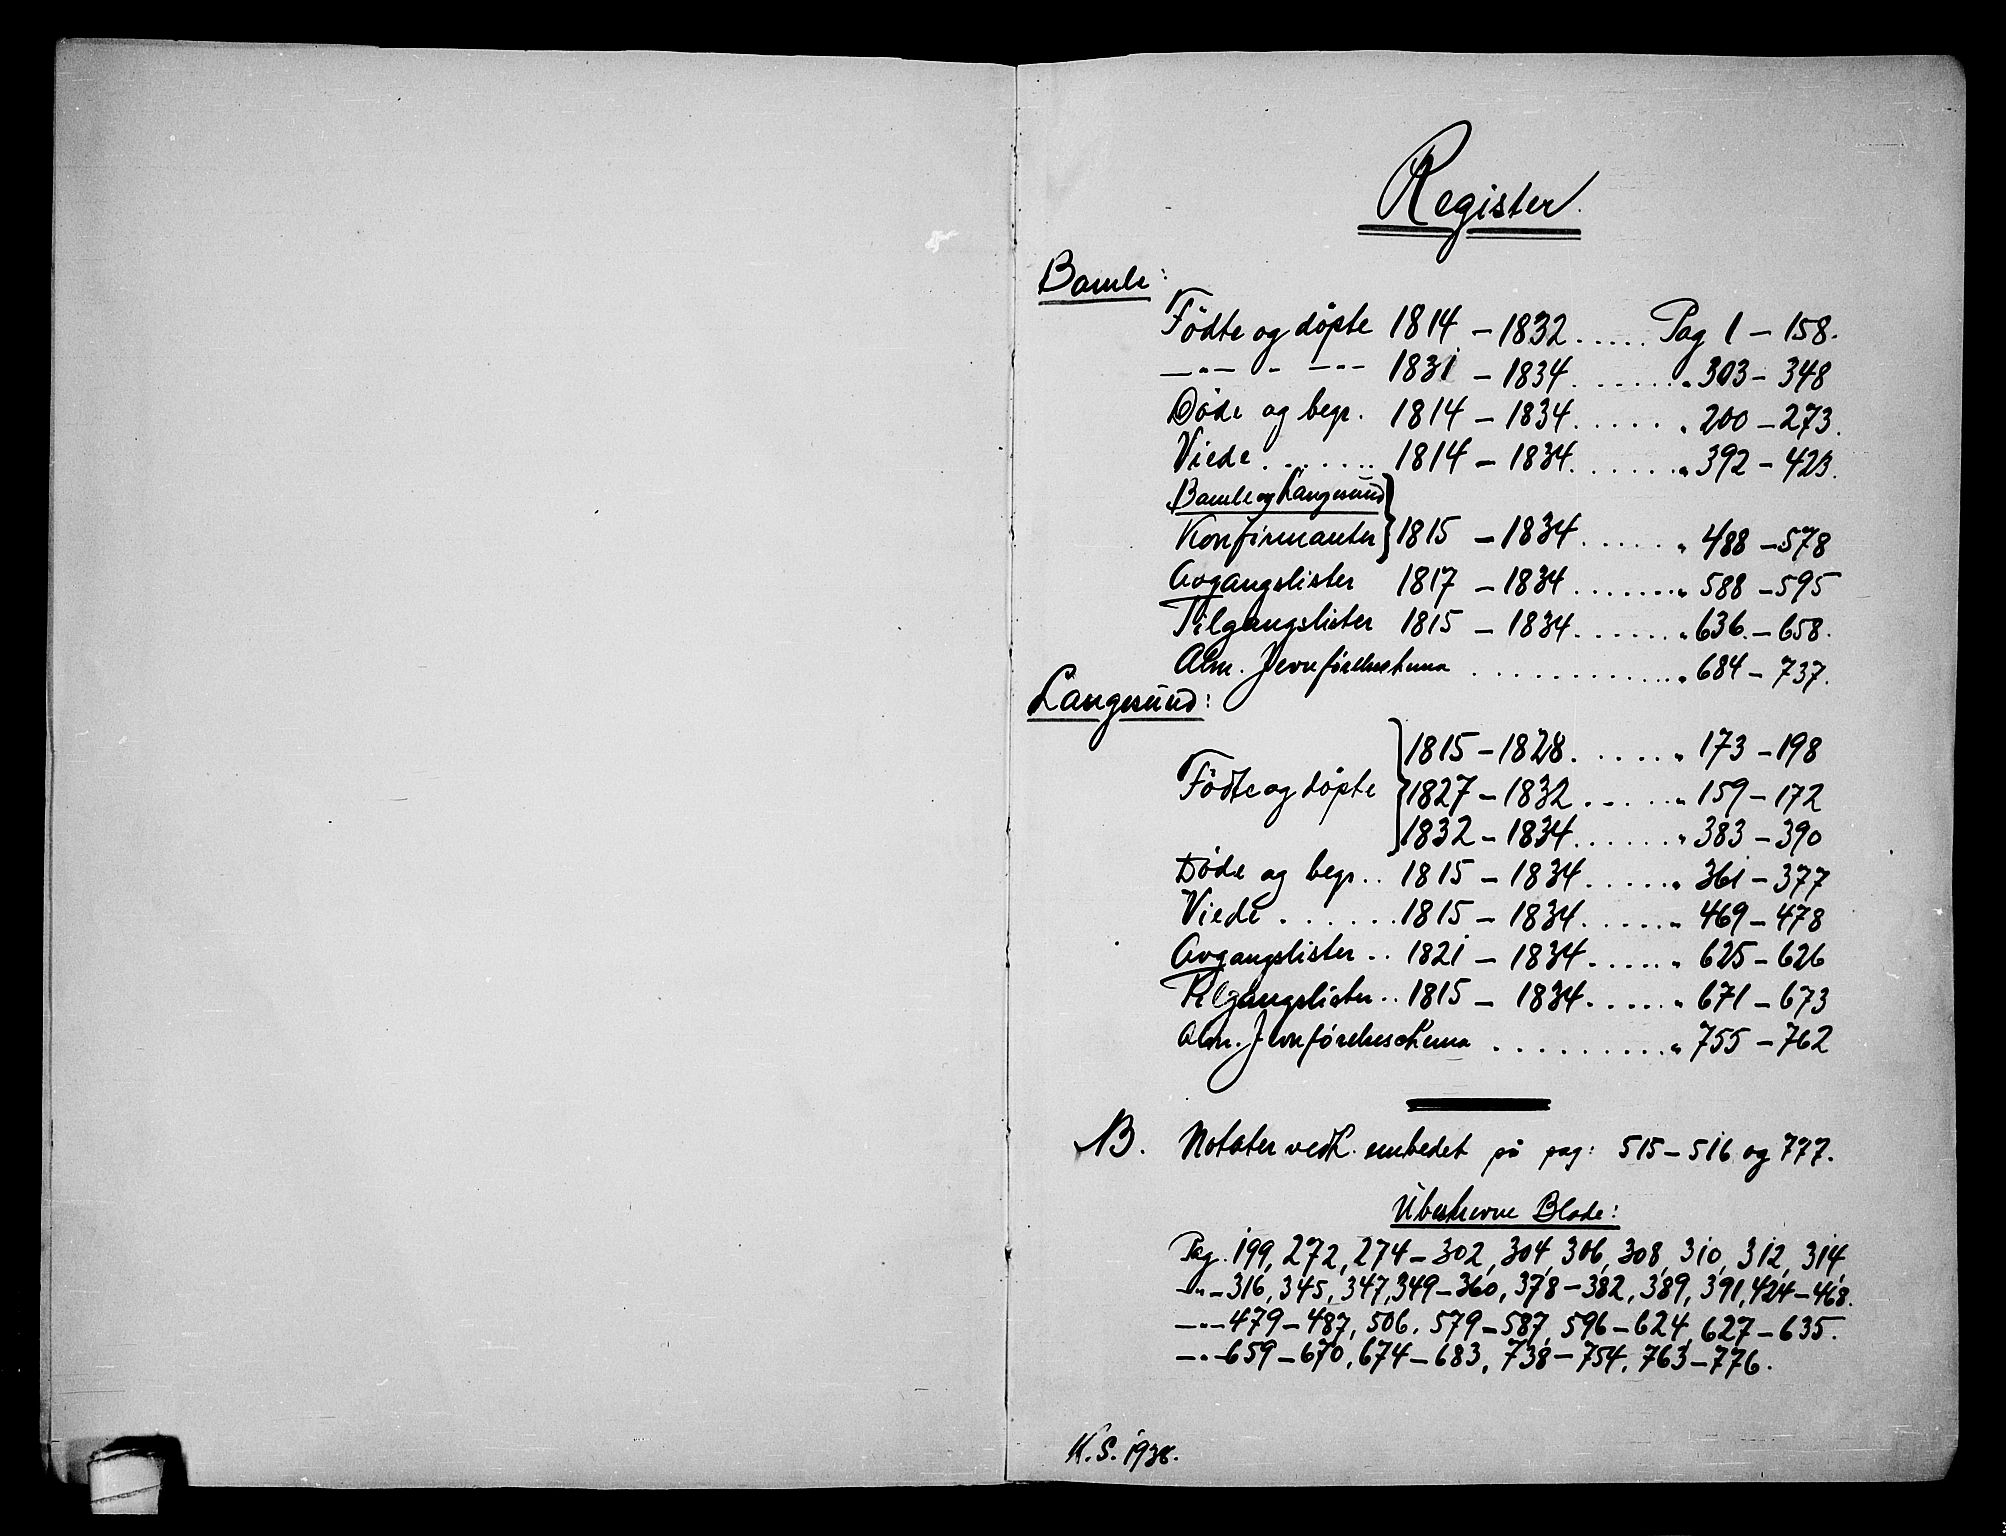 Register.
Bamle:
Födte og döpte 1814 – 1832 ..... Pag 1 – 158.
—"— - —"— 1831 – 1834 ....... " 303 – 348
Döde og begr. 1814 – 1834 ...... " 200 – 273.
Viede ....... 1814 – 1834 ....... " 392 – 423.
Bamle og Langesund }
Konfirmanter } 1815 – 1834 ...... " 488 – 578
Avgangslister 1817 – 1834 ....... " 588 – 595
Tilgangslister 1815 – 1834 ....... " 636 – 658.
Alm. Jevnførelseschema ............. " 684 – 737.
Langesund:
1815 – 1828 ....... " 173 – 198
Födte og döpte } 1827 – 1832 ...... " 159 – 172
1832 – 1834 ....... " 383 – 390
Döde og begr .. 1815 – 1834 ...... " 361 – 377
Viede ....... 1815 – 1834 ...... " 469 – 478
Avgangslister .. 1821 – 1834 ...... " 625 – 626
Tilgangslister .. 1815 – 1834 ...... " 671 – 673
Alm. Jevnførelseschema .......... " 755 – 762
NB. Notater vedk. embedet på pag: 515 – 516 og 777.
Übeskrevne Blade:
Pag. 199, 272, 274 – 302, 304, 306, 308, 310, 312, 314
—"— 316, 345, 347, 349 – 360, 378 – 382, 389, 391, 424 – 468.
—"— 479 – 487, 506, 579 – 587, 596 – 624, 627 – 635.
—"— 659 – 670, 674 – 683, 738 – 754, 763 – 776.
K. S. 1938.